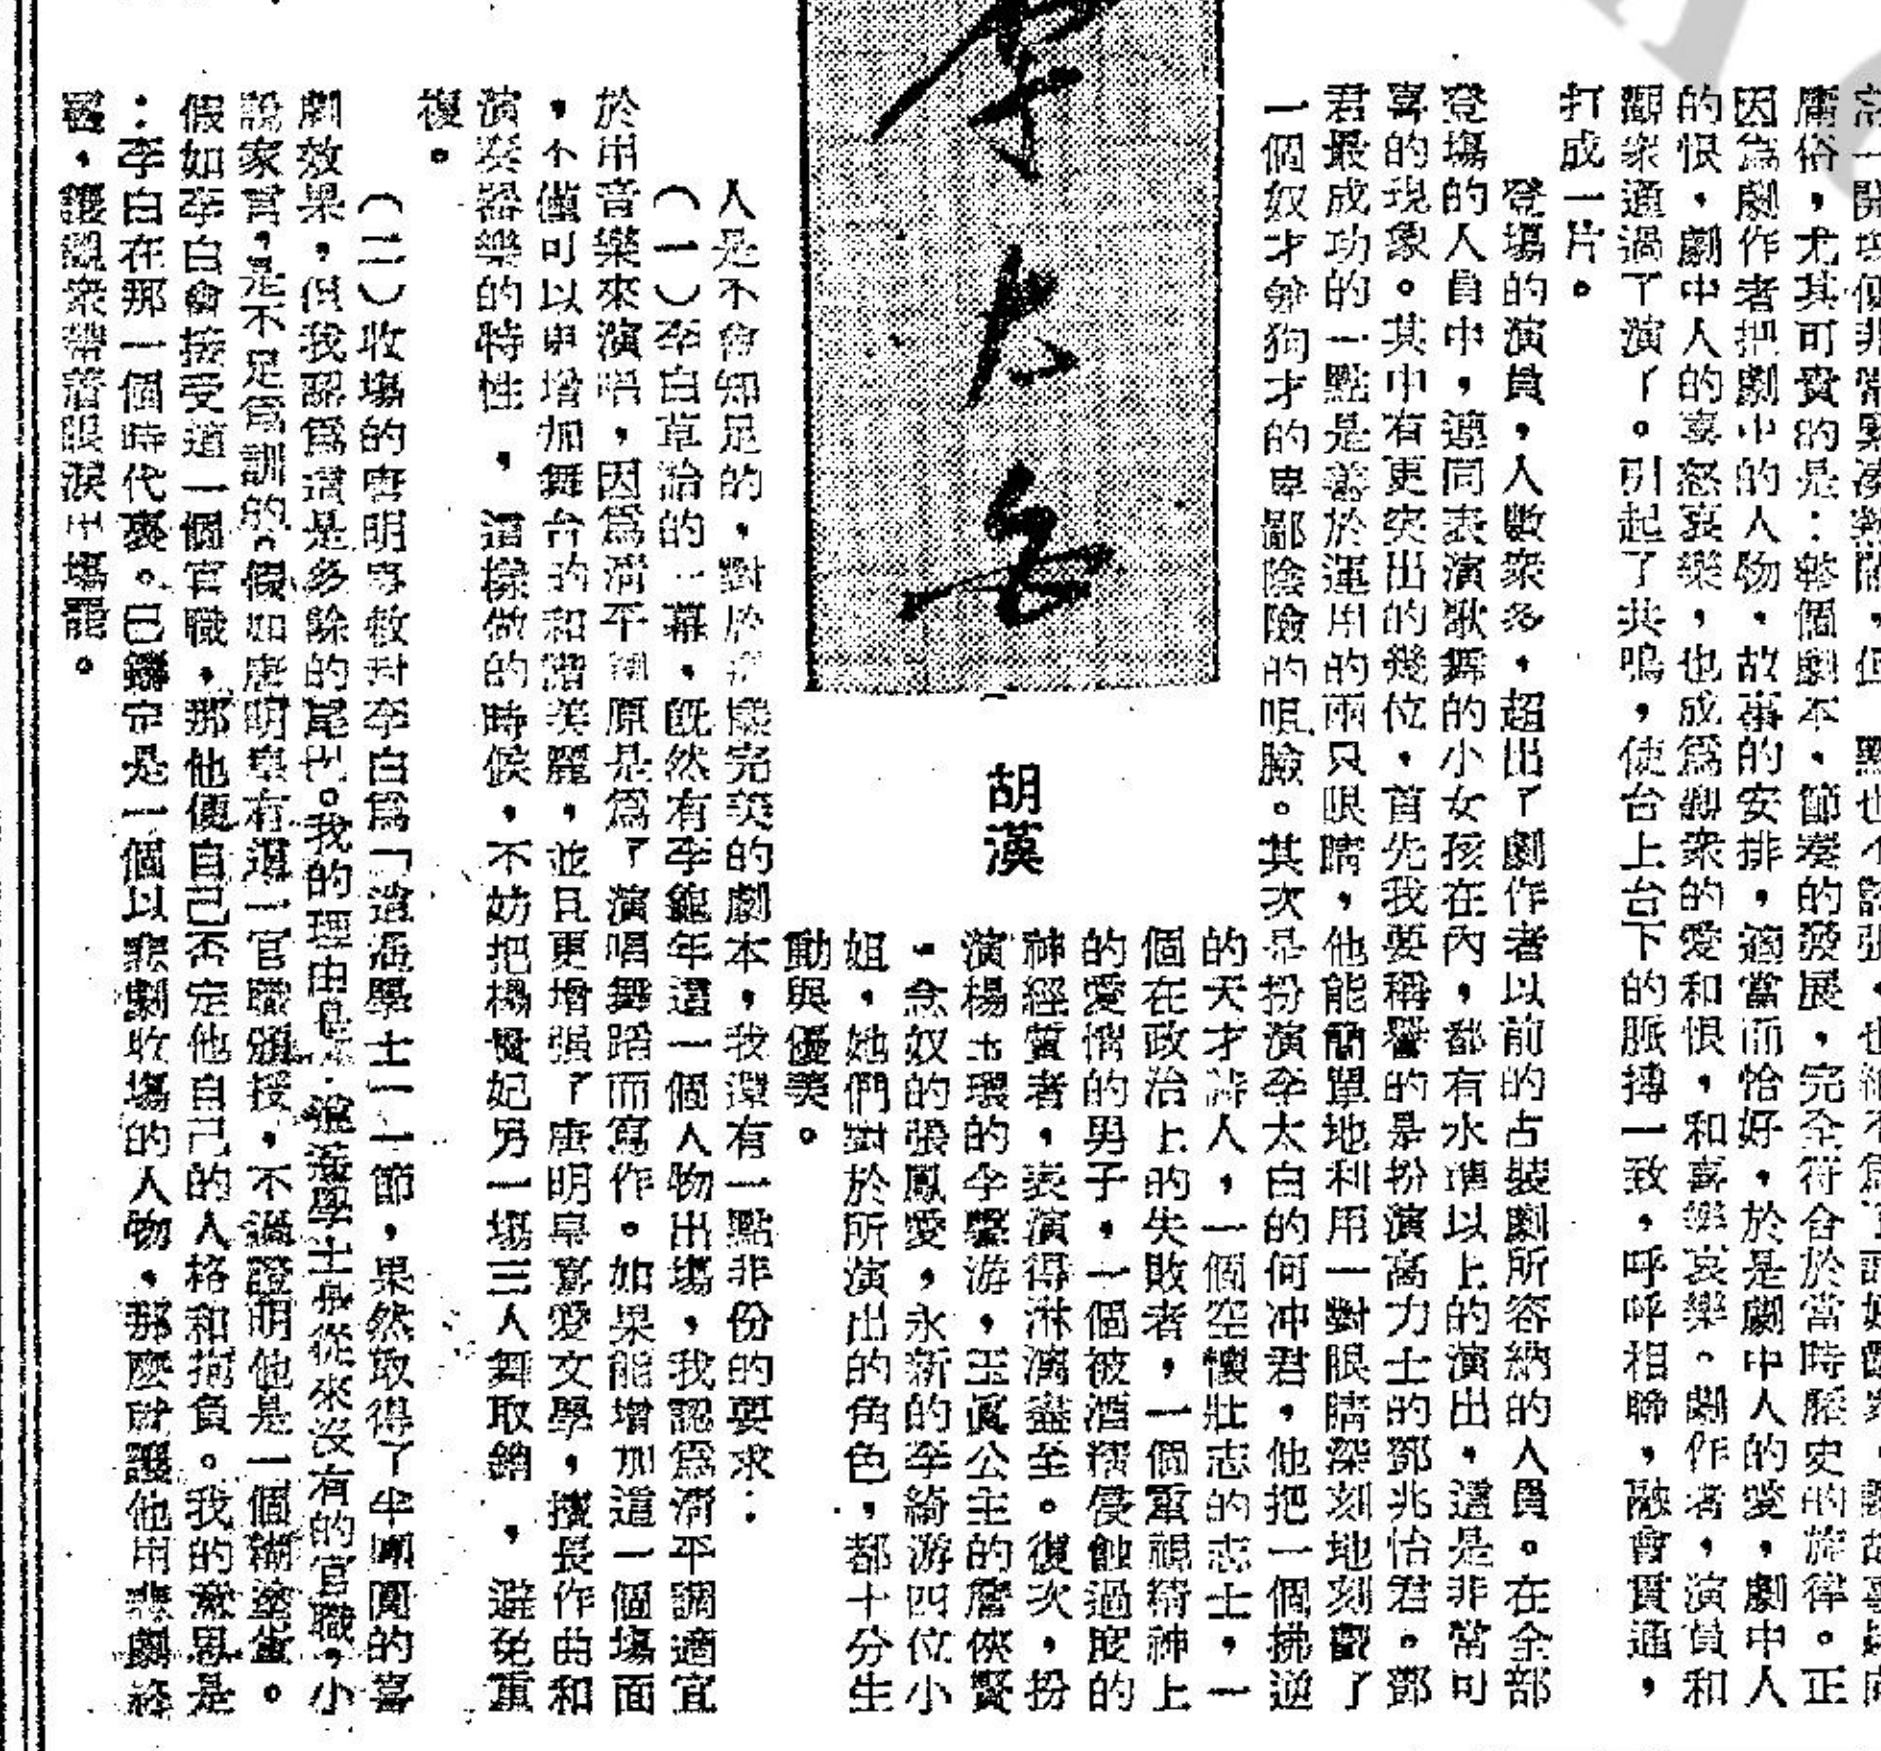 庸俗，尤其可貴的是：整個劇本，節奏的發展，完全符合於當時歷史的旋律。正
因為劇作者把劇中的人物，故事的安排，適當而恰好，於是劇中人的愛，劇中人
的恨，劇中人的喜怒哀樂，也成為觀衆的愛和恨，和喜樂哀樂。劇作者，演員和
觀衆通過了演了。引起了共鳴，使台上台下的脈搏一致，呼呼相聯，融會貫通，
打成一片。
登場的演員，人數衆多，超出了劇作者以前的古裝劇所容納的人員。在全部
登場的人員中，連同表演歌舞的小女孩在內，都有水準以上的演出，這是非常可
喜的現象。其中有更突出的幾位，首先我要稱譽的是扮演高力士的鄧兆怡君。鄧
君最成功的一點是善於運用的兩只眼睛，他能簡單地利用一對眼睛深刻地刻劃了
一個奴才兼狗才的卑鄙陰險的咀臉。其次是扮演李太白的何冲君，他把一個拂逆
的天才詩人，一個空懷壯志的志士，一
個在政治上的失敗者，一個重視精神上
的愛情的男子，一個被酒精侵蝕過度的
神經質者，表演得淋漓盡至。復次，扮
演楊玉環的李擊游，玉眞公主的詹俠賢
，念奴的張鳳愛，永新的李綺游四位小
姐，她們對於所演出的角色，都十分生
動與優美。
李太白
胡漢
人是不會知足的，對於這樣完美的劇本，我還有一點非份的要求：
（一）李白草詔的一幕，旣然有李龜年這一個人物出場，我認爲淸平調適宜
於用音樂來演唱，因爲淸平調原是爲了演唱舞蹈而寫作。如果能增加這一個場面
，不僅可以更增加舞台的和諧美麗，並且更增强了唐明皇喜愛文學，擅長作曲和
演奏器樂的特性，這樣做的時候，不妨把楊貴妃另一場三人舞取銷，避免重
複。
（二）收場的唐明皇敕封李白爲「逍遙學士」一節，果然取得了半團圓的喜
劇效果，但我認爲這是多餘的尾巴。我的理由是：逍遙學士是從來沒有的官職，小
說家言，是不足爲訓的，假如唐明皇有這一官職頒授，不過證明他是一個糊塗蛋。
假如李白會接受這一個官職，那他便自己否定他自己的人格和抱負。我的意思是
：李白在那一個時代裏。已鑄定是一個以悲劇收場的人物，那麼就讓他用悲劇終
塲，讓觀衆帶着眼淚出場罷。